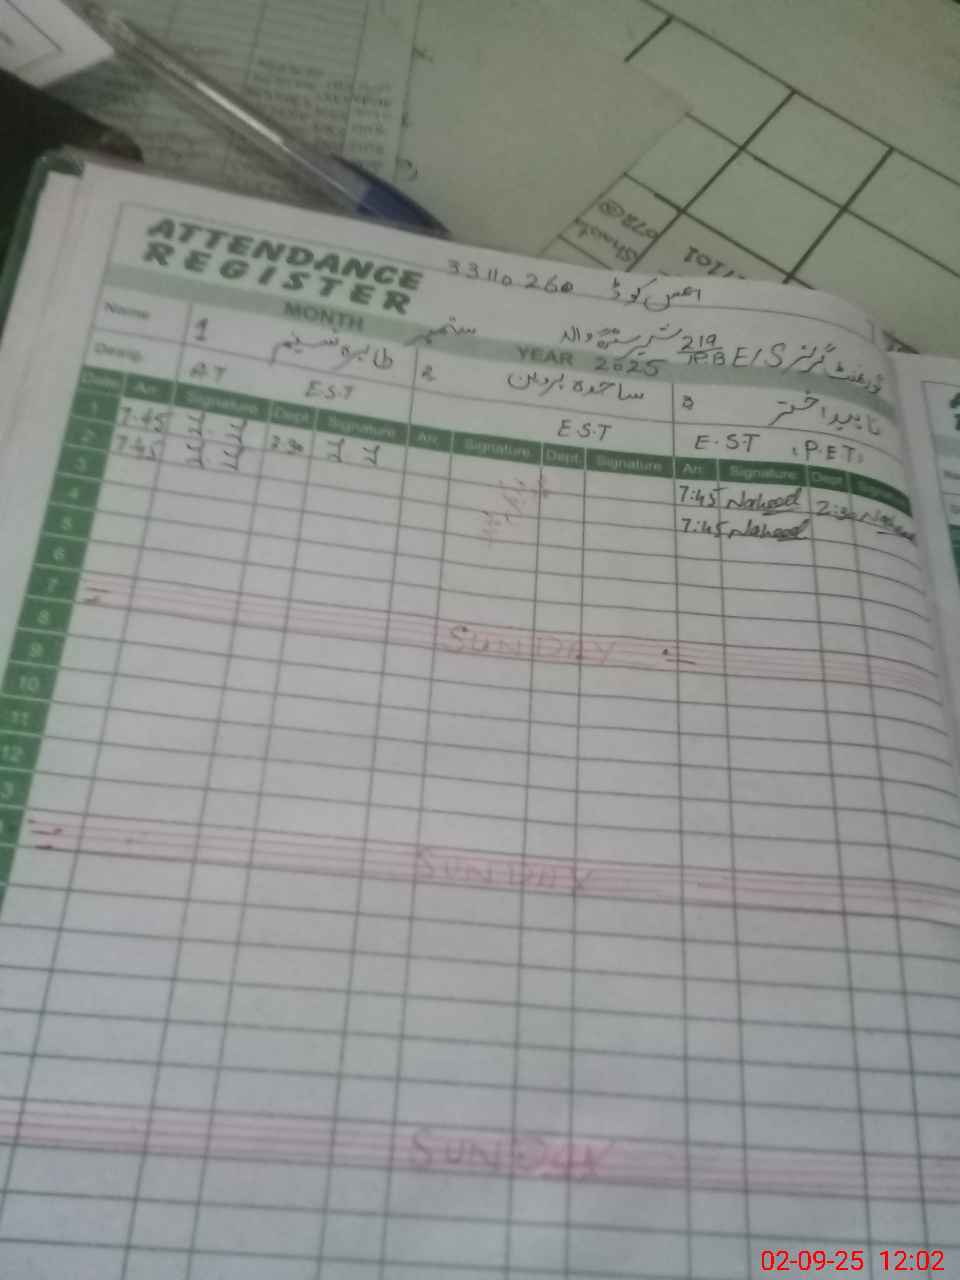 ATTENDANCE
REGISTER
33110260 ایمس کوڈ
MONTH ستمبر YEAR 2025 گورنمنٹ گرلز E/S 219/R.B
Name 1 طاہرہ نسیم 2 ساجدہ پروین 3 ناہید اختر
Desig. AT E.S.T E.S.T E.S.T (P.E.T)
Date Arr. Signature Dept. Signature Arr. Signature Dept. Signature Arr. Signature Dept. Signature
1 7:45 2:30 7:45 Naheed 2:30 Naheed
2 7:45 7:45 Naheed
3
4
5
6
7 SUNDAY
8
9
10
11
12
3
SUNDAY
SUNDAY
02-09-25 12:02